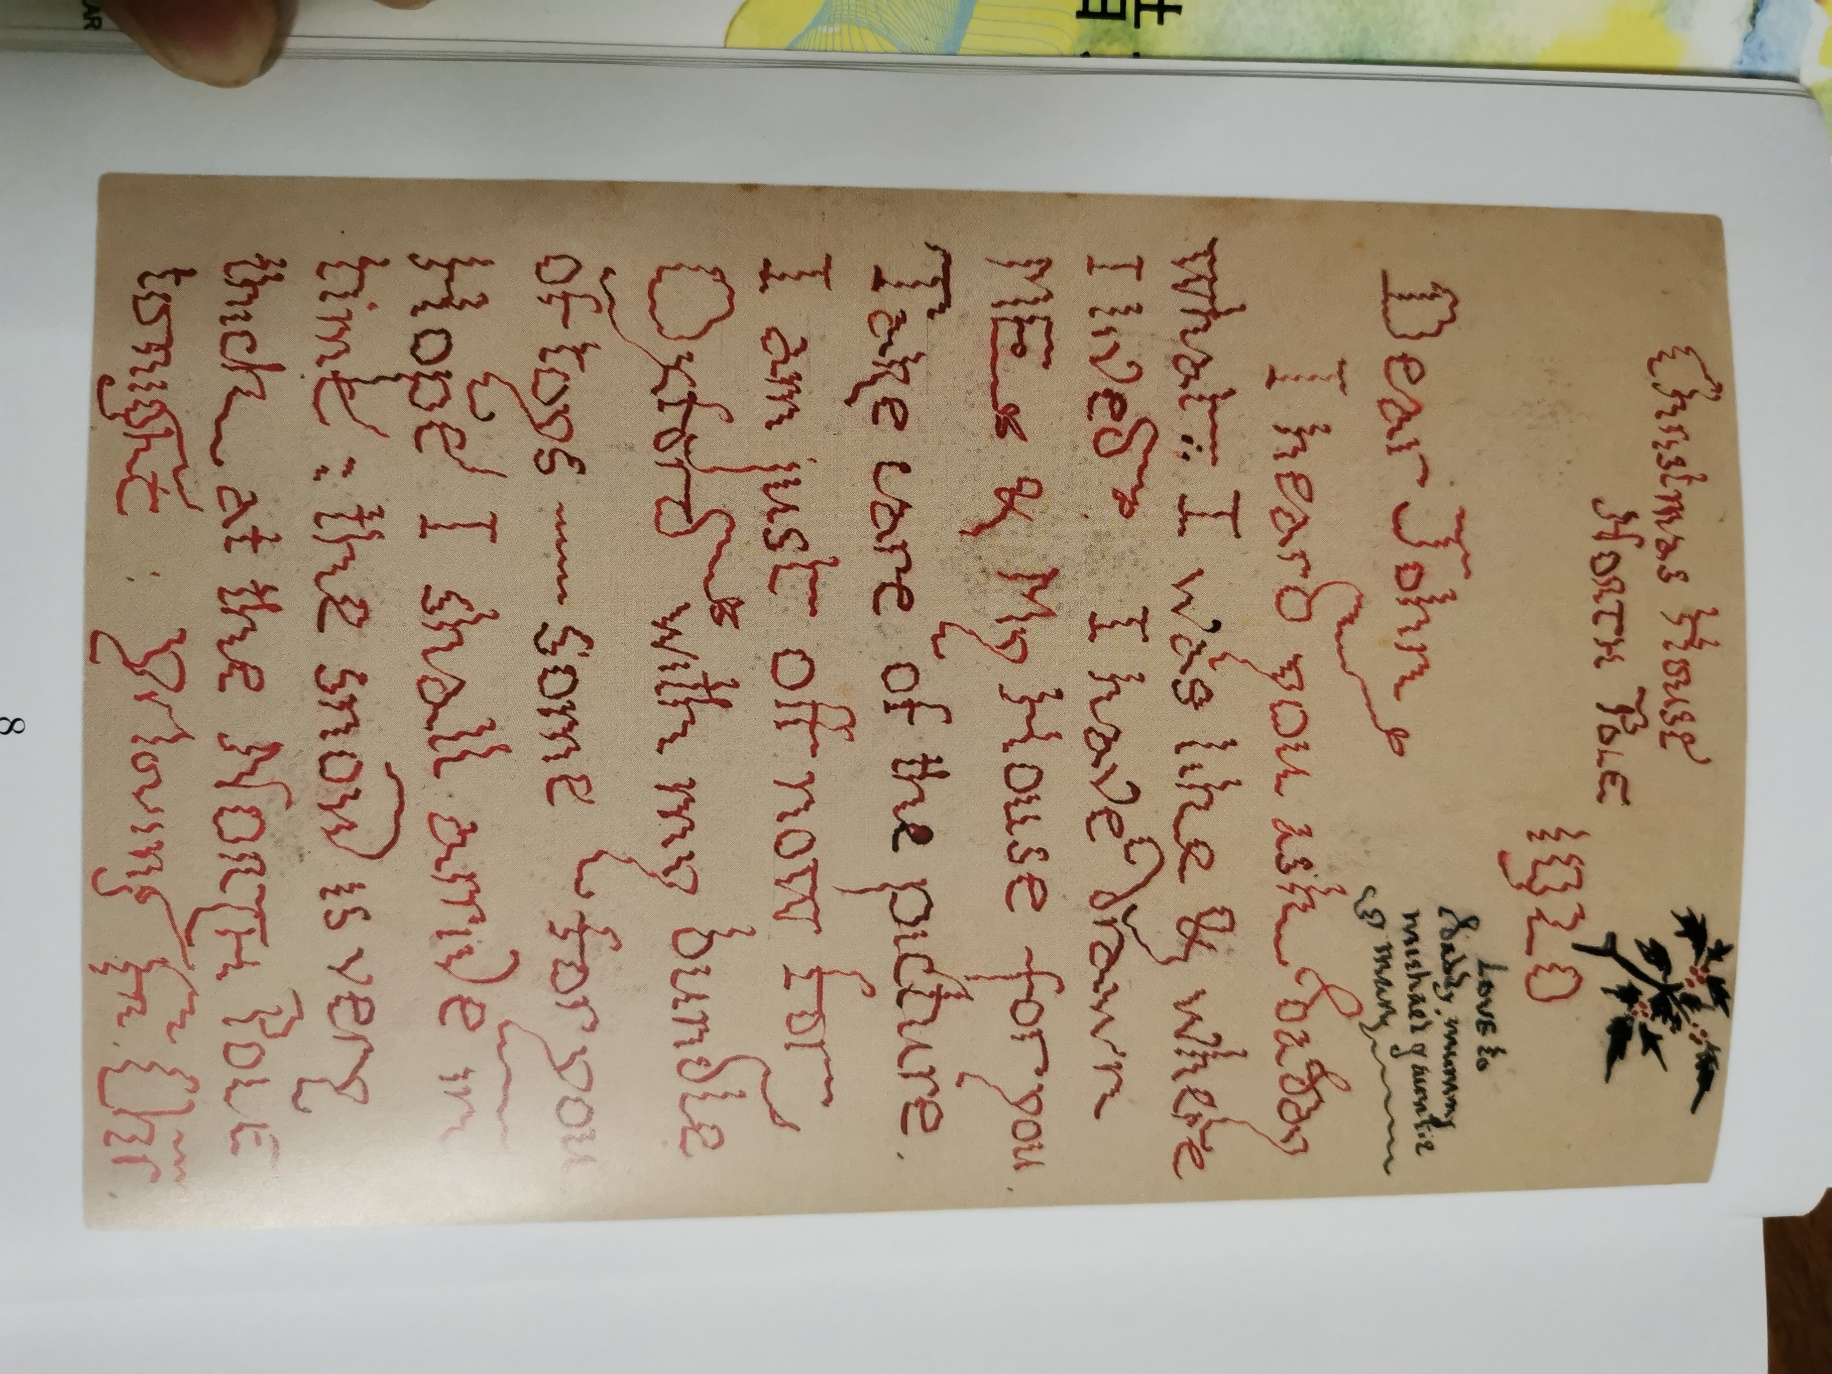 Christmas House
NORTH POLE
1920
Love to
daddy, mummy
michael & auntie
mary
Dear John
I heard you ask daddy
what I was like & where
I lived. I have drawn
ME & My House for you.
Take care of the picture.
I am just off now for
Oxford with my bundle
of toys — some for you
Hope I shall arrive in
time: the snow is very
thick at the NORTH POLE
tonight: Yr loving Fr. Chr
8
AR